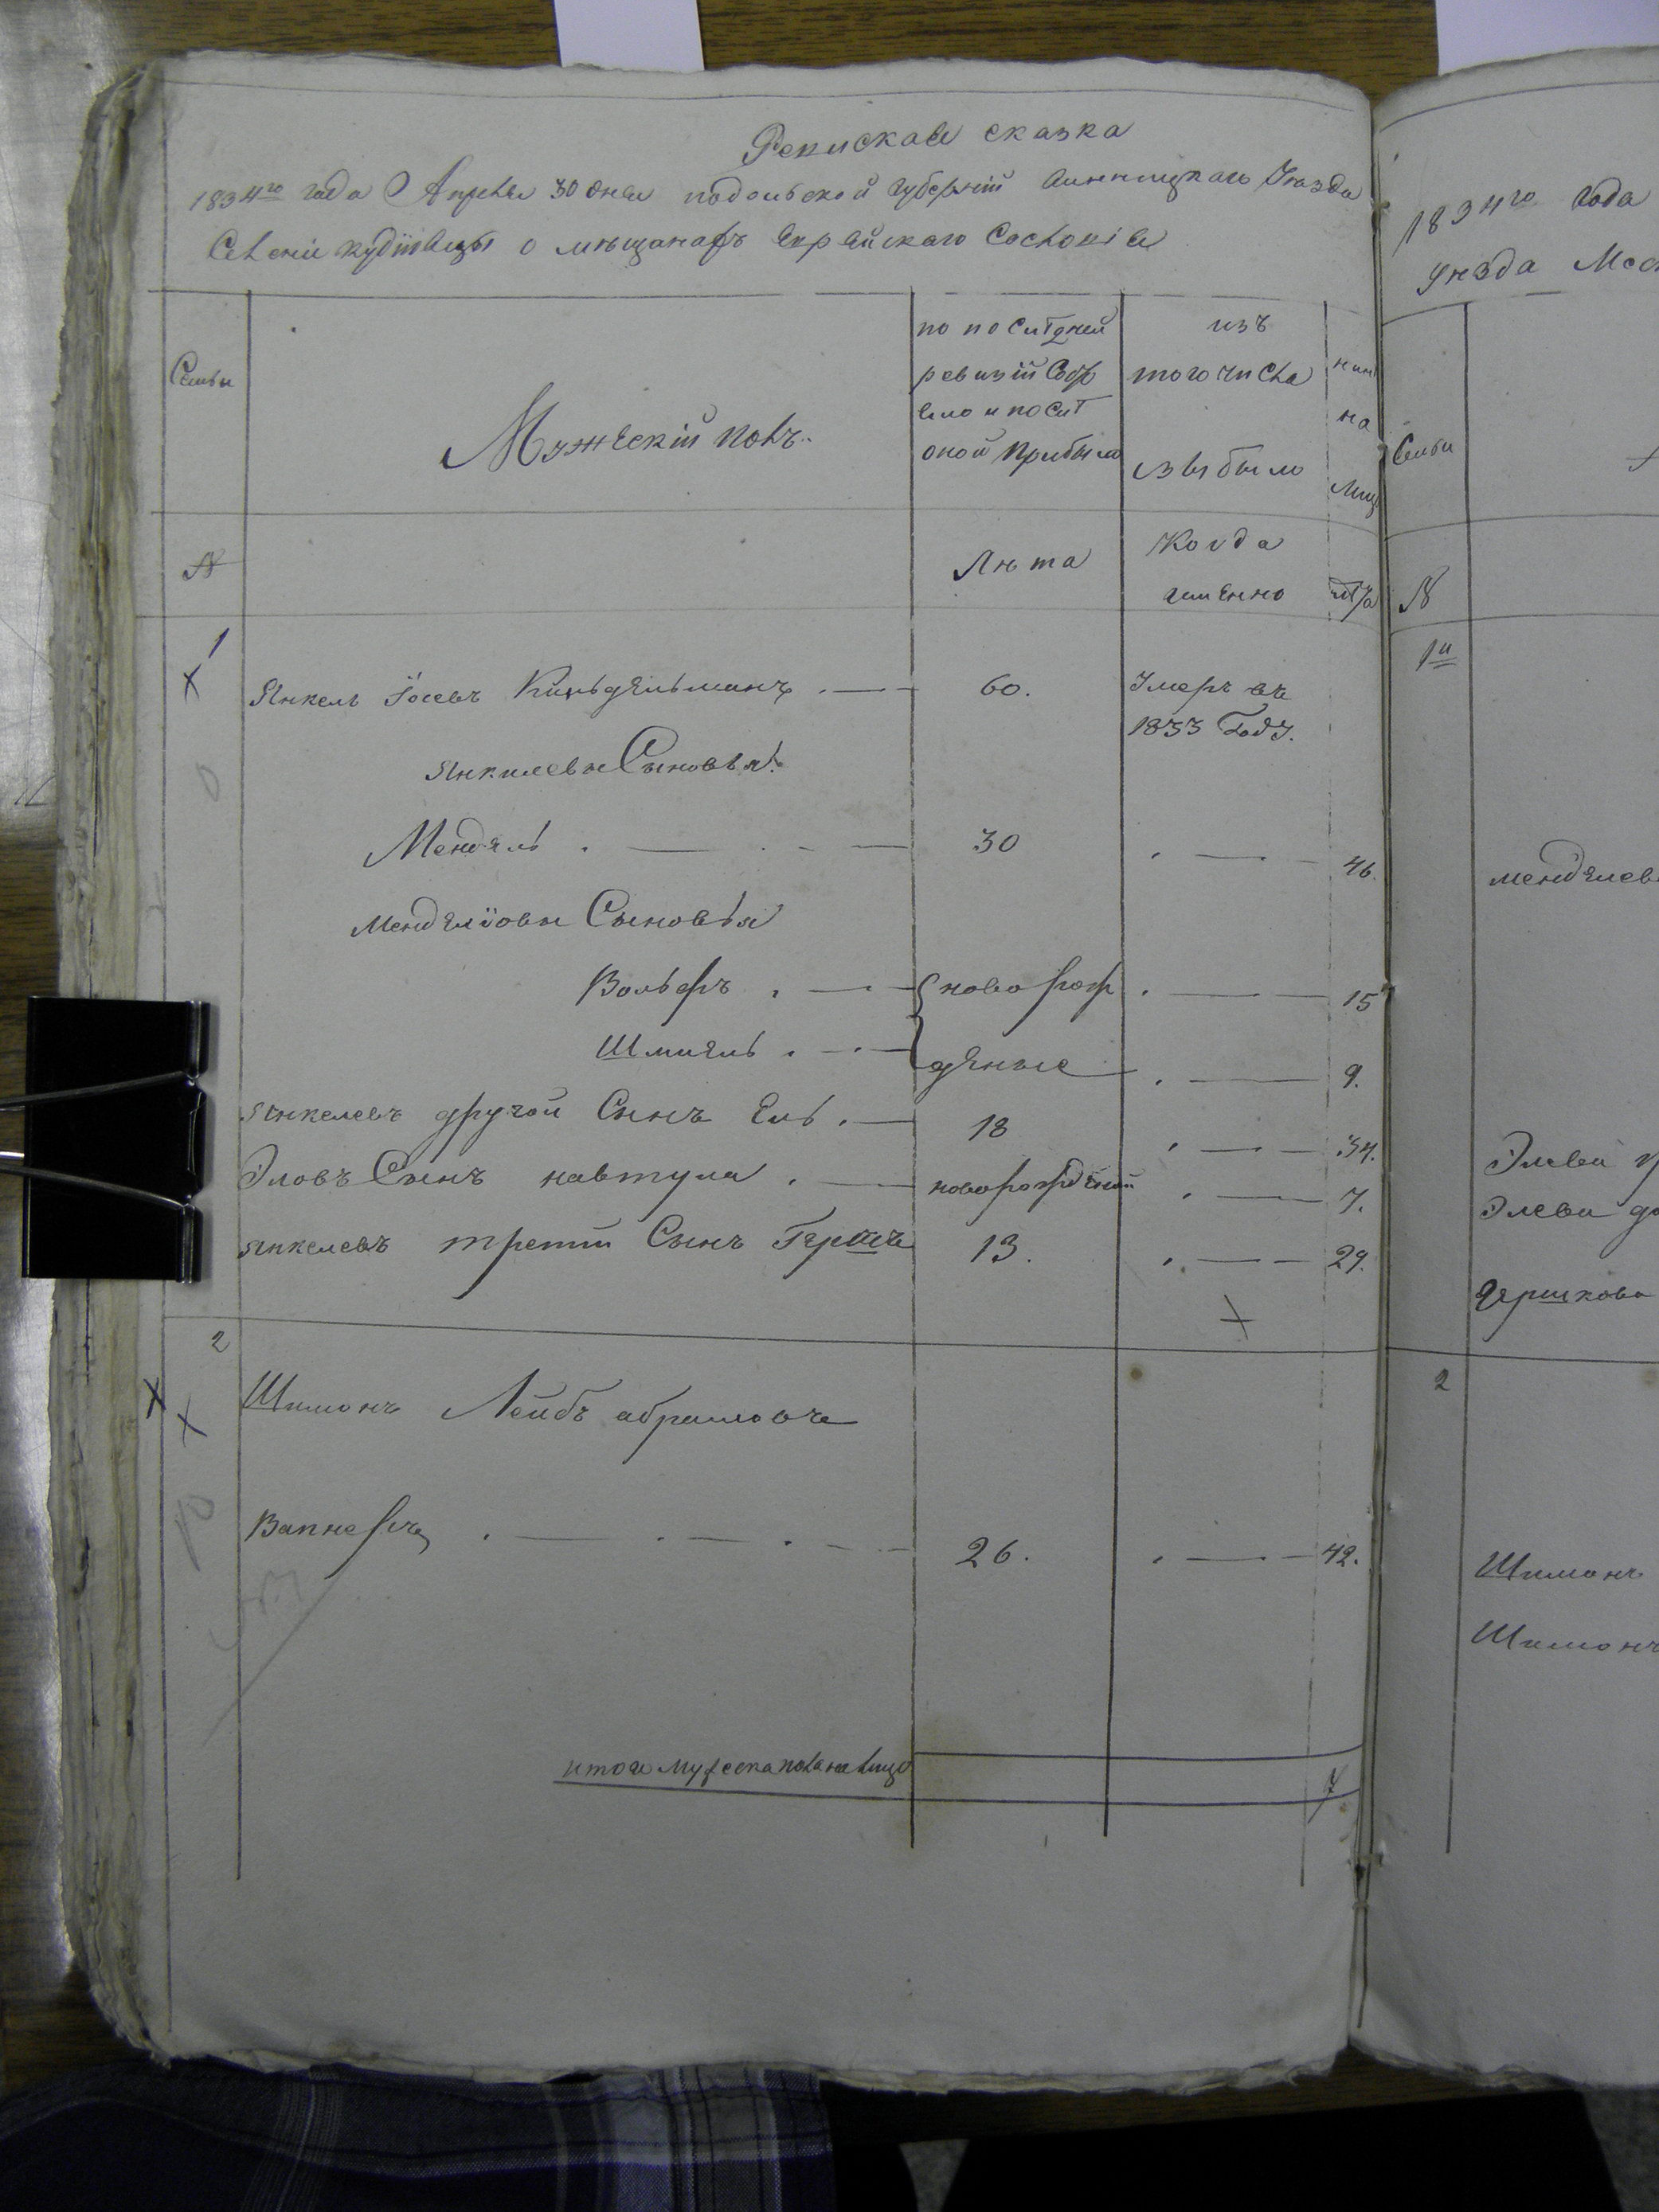 Ревиская сказка
1834го года Апреля 30 дня подольской губерній винницкаго Уезда
Селеніи кудіївцы о мещанахъ Еврейскаго Состояніе
Семьи
Мужескій полъ
по последней
ревизій Состо
яло и после
оной прибыло
изъ
того числа
выбыло
нине
на
лице
№
Лета
Когда
именно
лета
1
Янкель Іосевъ Киньдельманъ
60.
Умеръ въ
1833 Году.
Янкилевы Сыновья:
Мендель
30
46.
Менделіовы Сыновья
Вольфъ
новорож
15
Шмиель
деные
9.
Янкелевъ другой Сынъ Ель
18
34.
Эловъ Сынъ навтула
новорожденый
7.
Янкелевъ третий Сынъ Гершъ
13.
29.
2
Шимонъ Лейбъ абрамовъ
Вапнеръ
26.
42.
итого мужеска пола на лицо
7
1834го года
уезда
Семьи
№
1й
менделев
Элева
Элева
Гершкова
2
Шимонъ
Шимонъ